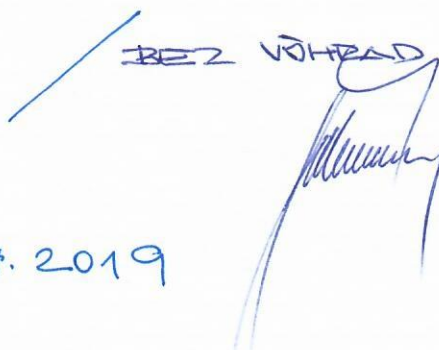 BEZ VÕHRAD
. 2019